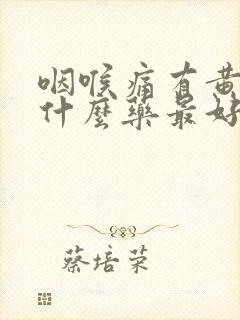 咽喉痛有黄
什麼藥最好
蔡培荣